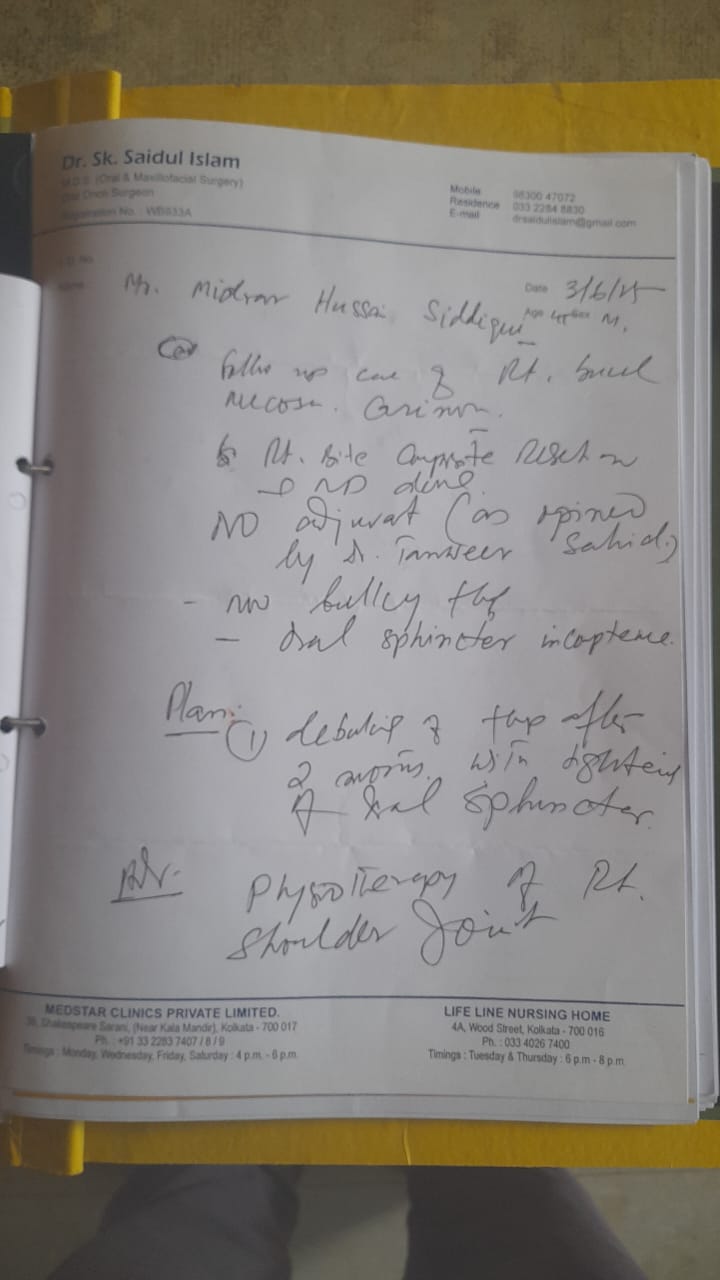 Dr. Sk. Saidul Islam
M.D.S. (Oral & Maxillofacial Surgery)
Onco Surgeon
Registration No. : WB933A
Mobile 98300 47072
Residence 033 2284 8830
E-mail drsaidulislam@gmail.com
I.D. No.
Name Mr. Hussai Siddiqui
Date 3/6/25
Age 45 Sex M.
follo up case of Rt. buccl
mucosa.
Rt. site Composite Resection
ND done.
NO adjuvat (as opined
by Dr. Tanweer Sahid)
- now bulky flap
- Oral sphincter incoptence.
Plan:
(1) debulking of flap after
2 months. with tightening
of oral sphincter.
Adv. Physiotherapy of Rt.
Shoulder Joint
MEDSTAR CLINICS PRIVATE LIMITED.
Shakespeare Sarani, (Near Kala Mandir), Kolkata - 700 017
Ph. : +91 33 2283 7407 / 8 / 9
Timings : Monday, Wednesday, Friday, Saturday : 4 p.m. - 6 p.m.
LIFE LINE NURSING HOME
4A, Wood Street, Kolkata - 700 016
Ph. : 033 4026 7400
Timings : Tuesday & Thursday : 6 p.m - 8 p.m.